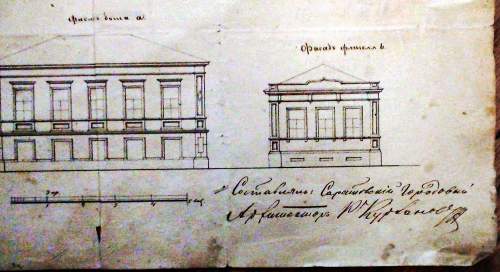 Фасадъ дома a.
Фасадъ флигеля b.
Составлялъ: Саратовскій Городовой
Архитекторъ